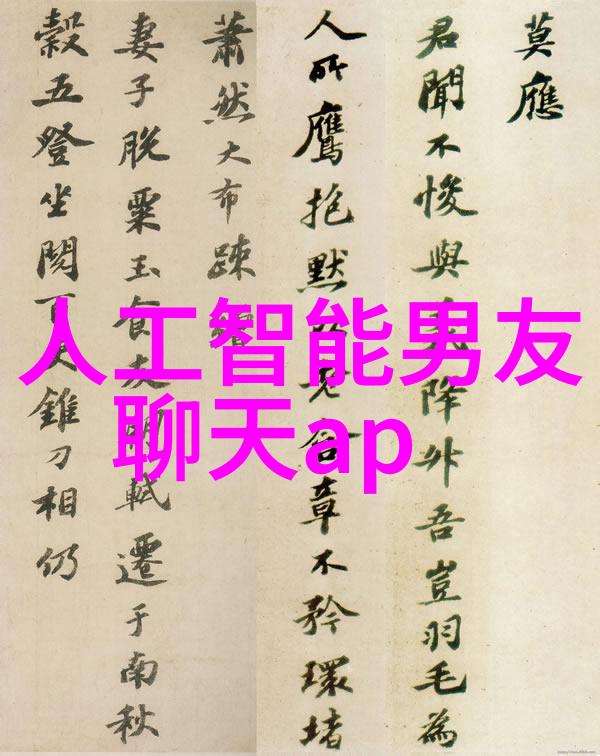 莫應
君聞不悛與降升吾豈羽毛為
人所鷹抱默含章不矜環堵
蕭然大布疎
妻子脫粟玉食友軾遷于南秋
穀五登坐閱錐刀相仍
人工智能男友
聊天ap